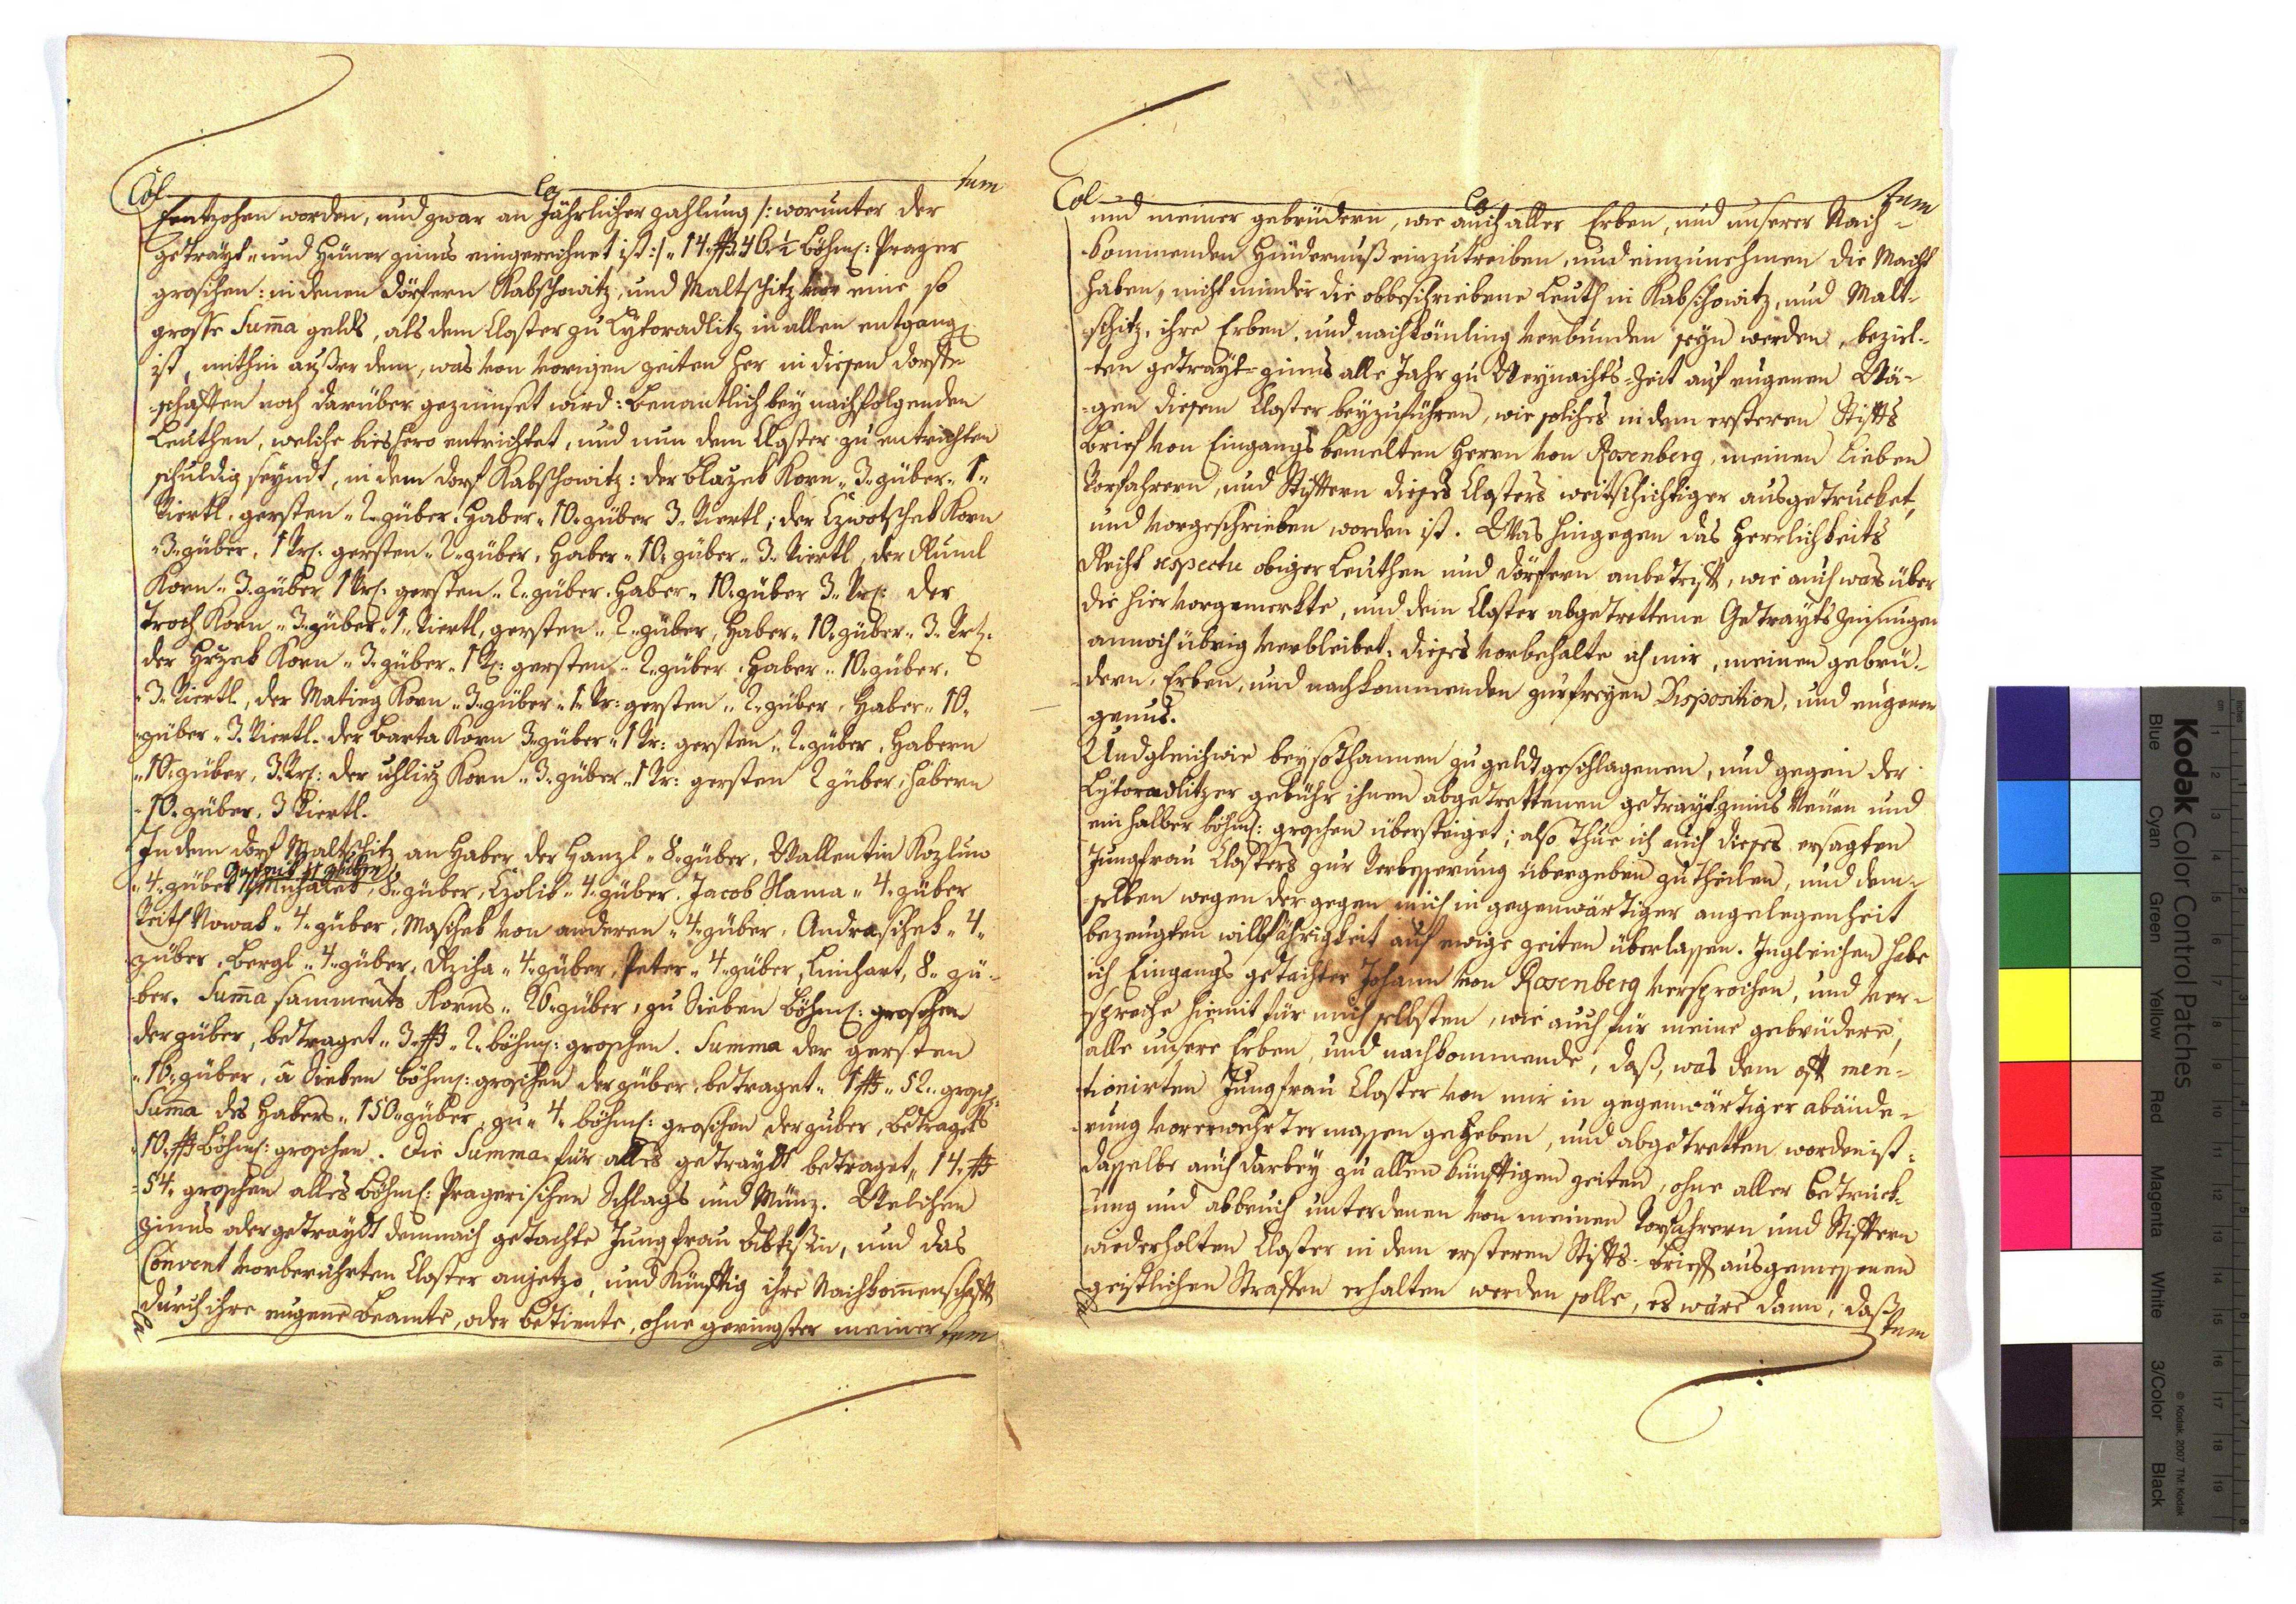 Col la tum
entzohen worden, und zwar an Jährlicher zahlung /: worunter der
getraÿd- und Hüner zinns eingerechnet ist :/ „14. ß 46 ½ böhm: Prager
groschen: in denen dörfern Kabschowitz, und Maltschitz eine so
grosse Suma gelds, als dem Closter zu Lÿtoradlitz in allen entgang
ist, mithin außer dem, was von vorigen zeiten her in diesen dorff-
schafften noch darüber gezinnset wird: benantlich beÿ nachfolgenden
Leuthen, welche bieshero entrichtet, und nun dem Closter zu entrichten
schuldig seÿndt, in dem dorf Kabschowitz: der blazek Korn „3„ züber „1„
Viertl. gersten „2„ züber, Haber „10„ züber 3. Viertl; der Czwotschek Korn
„3„ züber, 1 Vrl: gersten „2„ züber, Haber „10„ züber „3„ Viertl, der Ruml
Korn „3„ züber 1 Vrl: gersten „2„ züber, Haber „10„ züber 3„ Vrl: der
Troch Korn „3„ züber „1„ Viertl, gersten „2„ züber, Haber „10„ züber „3„ Vrl:
der Hrzek Korn „3„ züber „1 Vr: gersten „2„ züber, Haber „10„ züber,
„3„ Viertl, der Matieg Korn „3„ züber „1„ Vr: gersten „2„ züber, Haber „10„
züber „3. Viertl. der barta Korn 3„ züber „1 Vr: gersten „2„ züber, Habern
„10„ züber, 3 Vrl: der uhlirz Korn „3„ züber „1 Vr: gersten 2 züber, habern
„10„ züber, 3 Viertl.
In dem dorf Maltschitz an Haber der Hanzl „8„ züber, Wallentin Kozlun
4 züber
„4„ züber Michalek, 8„ züber, Czolik „4„ züber. Jacob Nama „4„ züber
Veith Nowak „4„ züber, Maschek von anderen „4„ züber, Andraschek „4„
züber, Bergl „4„ züber, Rziha „4„ züber, Peter „4„ züber, Linhart, 8„ zü-
ber. Suma samments Korns „26„ züber, zu Sieben böhm: groschen
der züber, betraget „3„ ß „2„ böhm: groschen. Summa der gersten
„16„ züber, â Sieben böhm: groschen der züber, betraget „1 ß „52„ grosch:
Suma des Habers „150„ züber, zu „4„ böhm: groschen der züber, betraget
„10„ ß böhm: groschen. Die Summa für alles getraÿdt betraget „14„ ß
54„ groschen alles böhm: Pragerischen Schlags und Münz. Welchen
zinns oder getraÿdt demnach gedachte Jungfrau Abbtißin, und das
Convent vorberührten Closter anjetzo, und künfftig ihre Nachkomenschafft
durch ihre eugene beamte, oder bediente, ohne geringster meiner
la tum
Col la tum
und meiner gebrüdern, wie auch aller Erben, und unserer Nach-
kommenden Hindernuß einzutreiben, und einzunehmen die Macht
haben, nicht minder die obbeschriebene Leuth in Kabschowitz, und Malt-
schitz, ihre Erben, und nachkömling verbunden seÿn werden, beziel-
ten getraÿd-zinns alle Jahr zu Weÿnachts-Zeit auf eugenen Wä-
gen diesem Closter beÿzuführen, wie solches in dem ersteren Stiffts
brief von Eingangs bemelten Herrn von Rosenberg, meinen lieben
Vorfahrern, und Stifftern dieses Closters weitschichtiger ausgedrucket,
und vorgeschrieben worden ist. Was hingegen das Herrlichkeits
Recht respectu obiger Leuthen und dörfern anbetrifft, wie auch was über
die hier vorgemerkte, und dem Closter abgetrettene Getraÿds Zinsungen
annoch übrig verbleibet: dieses vorbehalte ich mir, meinen gebrü-
dern, Erben, und nachkommenden zur freÿen Disposition, und eugenen
genus.
Und gleichwie beÿ sothannen zu geldt geschlagenen, und gegen der
Lÿtoradlitzer gebühr ihnen abgetrettenen getraÿdzinns Neüen und
ein halber böhm: groschen übersteiget; also thue ich auch dieses ersagten
Jungfrau Closters zur Verbesserung übergeben zutheilen, und dem-
selben wegen der gegen mich in gegenwärtiger angelegenheit
bezeugten willfährigkeit auf ewige zeiten überlassen. Ingleichen habe
ich Eingangs gedachter Johann von Rosenberg versprochen, und ver-
spreche hiemit für mich selbsten, wie auch für meine gebrüdere,
alle unsere Erben, und nachkommende, daß, was dem offt men-
tionirten Jungfrau Closter von mir in gegenwärtiger abände-
rung vorerwehntermassen gegeben, und abgetretten worden ist:
dasselbe auch darbeÿ zu allen künfftigen zeiten, ohne aller bedruck-
ung und abbruch unter denen von meinen Vorfahrern und Stifftern
wiederholten Closter in dem ersteren Stiffts-brieff ausgemessenen
geistlichen Straffen erhalten werden solle, es wäre dann, daß
la tum
Kodak Color Control Patches
Blue Cyan Green Yellow Red Magenta White 3/Color Black
© Kodak, 2007 TM: Kodak